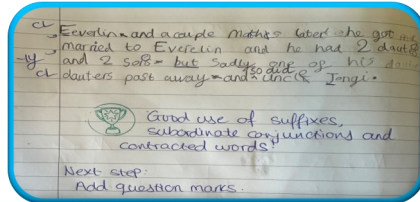 CL Eeverlin and a couple maths later he got
married to Everelin and he had 2 dauters
-ly and 2 sons but sadly one of his
so did
CL dauters past away and uncle Jongi.
Good use of suffixes,
subordinate conjunctions and
contracted words!
Next step:
Add question marks.